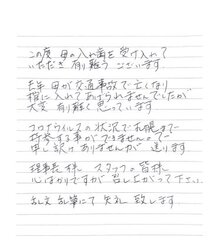 この度 母の入れ歯を受け入れて
いただき 有り難う ございます
去年 母が交通事故で亡くなり
棺に入れてあげられませんでしたが
大変 有り難く 思っています
コロナウイルスの状況で札幌まで
持参する事ができませんので
申し訳ありませんが 送ります
理事長様 スタッフの皆様
心ばかりですが 召し上がって下さい
乱文 乱筆にて 失礼 致します